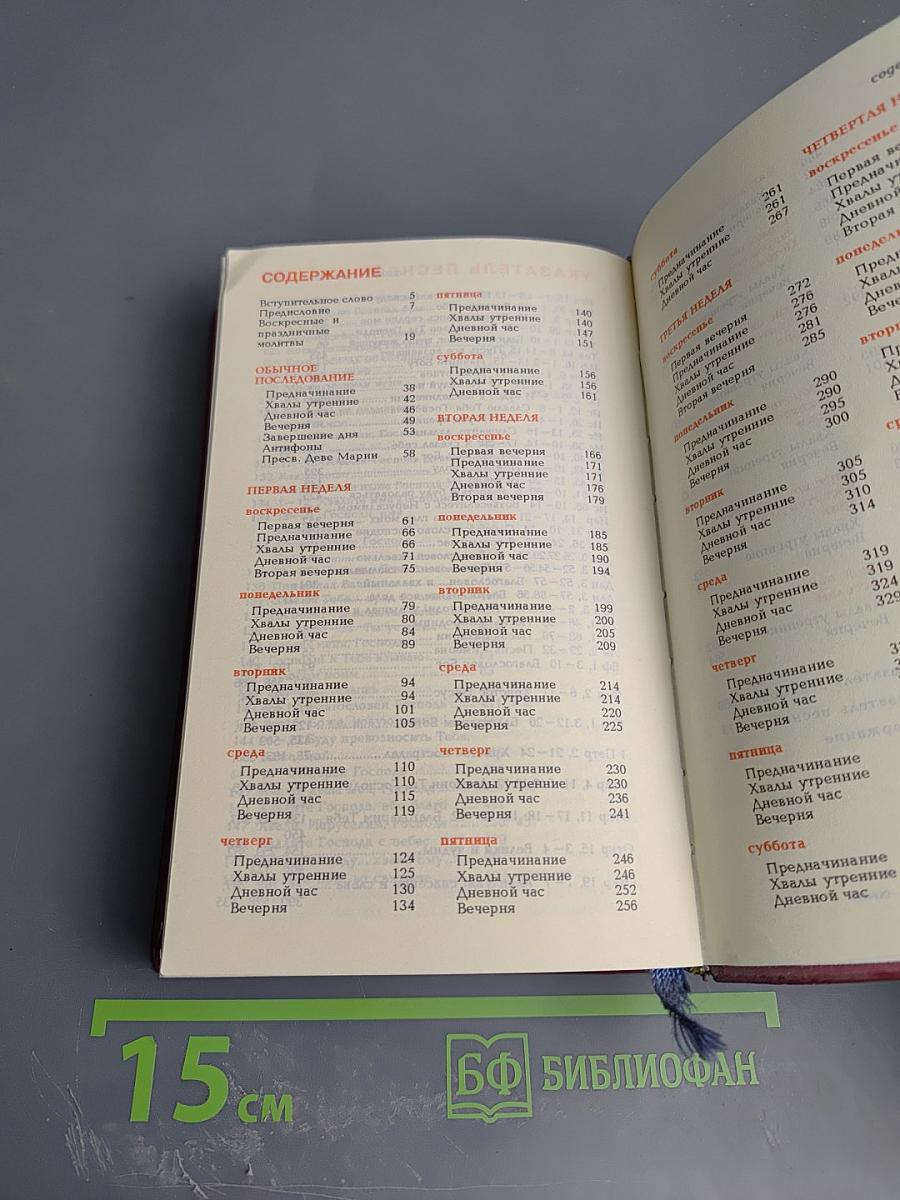 СОДЕРЖАНИЕ
Вступительное слово 5
Предисловие 7
Воскресные и
праздничные
молитвы 19
ОБЫЧНОЕ
ПОСЛЕДОВАНИЕ
Предначинание 38
Хвалы утренние 42
Дневной час 46
Вечерня 49
Завершение дня 53
Антифоны
Пресв. Деве Марии 58
ПЕРВАЯ НЕДЕЛЯ
воскресенье
Первая вечерня 61
Предначинание 66
Хвалы утренние 66
Дневной час 71
Вторая вечерня 75
понедельник
Предначинание 79
Хвалы утренние 80
Дневной час 84
Вечерня 89
вторник
Предначинание 94
Хвалы утренние 94
Дневной час 101
Вечерня 105
среда
Предначинание 110
Хвалы утренние 110
Дневной час 115
Вечерня 119
четверг
Предначинание 124
Хвалы утренние 125
Дневной час 130
Вечерня 134
пятница
Предначинание 140
Хвалы утренние 140
Дневной час 147
Вечерня 151
суббота
Предначинание 156
Хвалы утренние 156
Дневной час 161
ВТОРАЯ НЕДЕЛЯ
воскресенье
Первая вечерня 166
Предначинание 171
Хвалы утренние 171
Дневной час 176
Вторая вечерня 179
понедельник
Предначинание 185
Хвалы утренние 185
Дневной час 190
Вечерня 194
вторник
Предначинание 199
Хвалы утренние 200
Дневной час 205
Вечерня 209
среда
Предначинание 214
Хвалы утренние 214
Дневной час 220
Вечерня 225
четверг
Предначинание 230
Хвалы утренние 230
Дневной час 236
Вечерня 241
пятница
Предначинание 246
Хвалы утренние 246
Дневной час 252
Вечерня 256
суббота
Предначинание 261
Хвалы утренние 261
Дневной час 267
ТРЕТЬЯ НЕДЕЛЯ
воскресенье
Первая вечерня 272
Предначинание 276
Хвалы утренние 276
Дневной час 281
Вторая вечерня 285
понедельник
Предначинание 290
Хвалы утренние 290
Дневной час 295
Вечерня 300
вторник
Предначинание 305
Хвалы утренние 305
Дневной час 310
Вечерня 314
среда
Предначинание 319
Хвалы утренние 319
Дневной час 324
Вечерня 329
четверг
Предначинание
Хвалы утренние
Дневной час
Вечерня
пятница
Предначинание
Хвалы утренние
Дневной час
Вечерня
суббота
Предначинание
Хвалы утренние
Дневной час
ЧЕТВЕРТАЯ
воскресенье
Первая
Дневной
Вторая
15 см
БФ БИБЛИОФАН